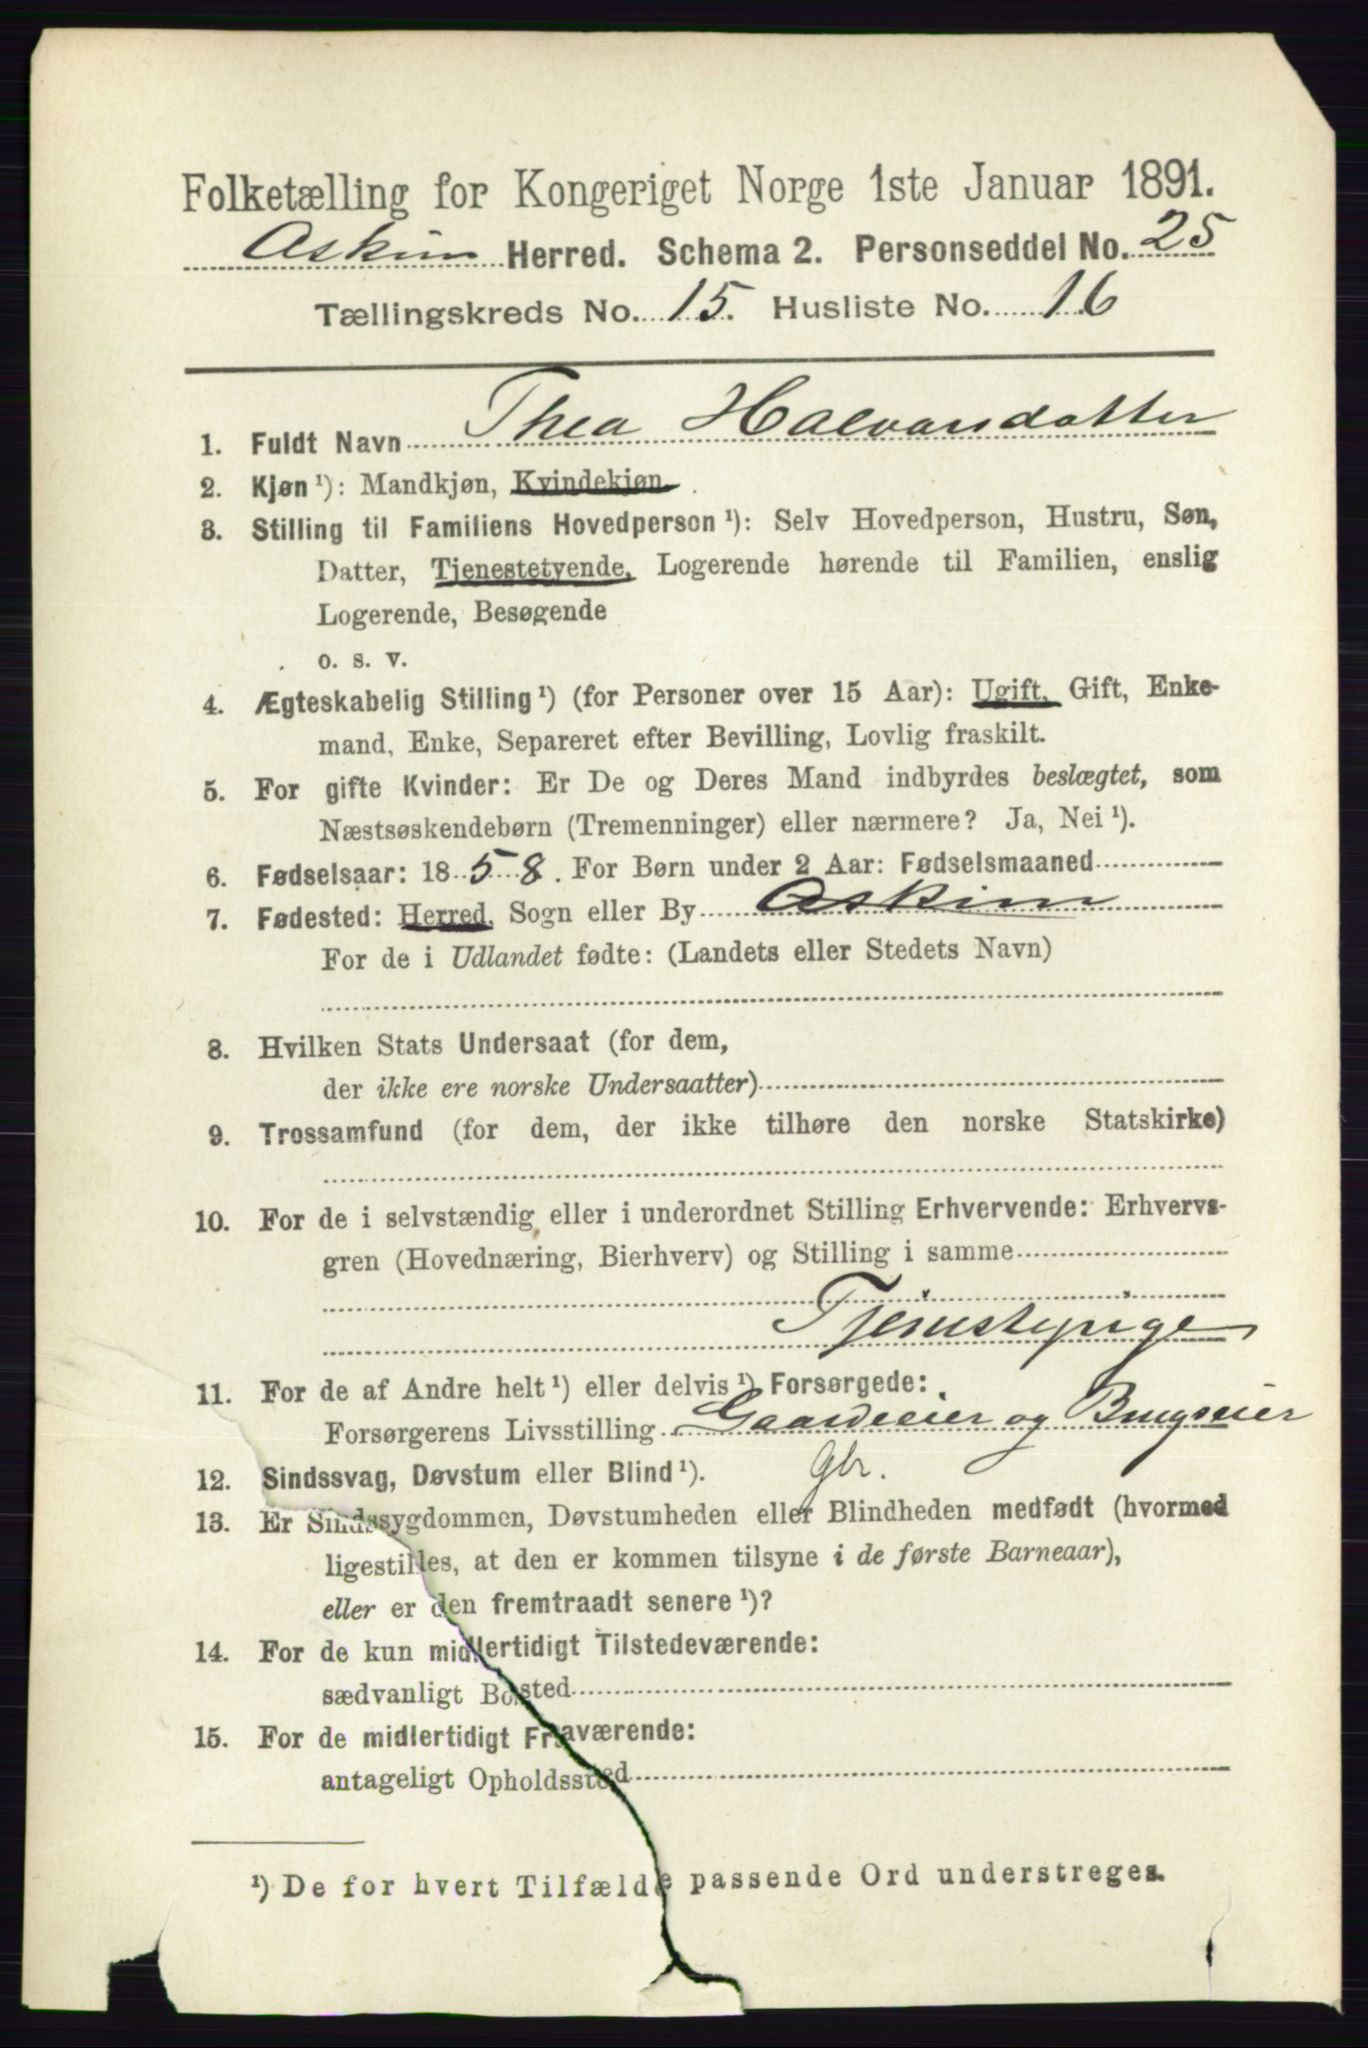 Folketælling for Kongeriget Norge 1ste Januar 1891.
Askim Herred. Schema 2. Personseddel No. 25
Tællingskreds No. 15. Husliste No. 16
1. Fuldt Navn Thea Halvorsdatter
2. Kjøn¹): Mandkjøn, Kvindekjøn.
3. Stilling til Familiens Hovedperson¹): Selv Hovedperson, Hustru, Søn,
Datter, Tjenestetyende, Logerende hørende til Familien, enslig
Logerende, Besøgende
o. s. v.
4. Ægteskabelig Stilling¹) (for Personer over 15 Aar): Ugift, Gift, Enke-
mand, Enke, Separeret efter Bevilling, Lovlig fraskilt.
5. For gifte Kvinder: Er De og Deres Mand indbyrdes beslægtet, som
Næstsøskendebørn (Tremenninger) eller nærmere? Ja, Nei¹).
6. Fødselsaar: 1858. For Børn under 2 Aar: Fødselsmaaned
7. Fødested: Herred, Sogn eller By Askim
For de i Udlandet fødte: (Landets eller Stedets Navn)
8. Hvilken Stats Undersaat (for dem,
der ikke ere norske Undersaatter)
9. Trossamfund (for dem, der ikke tilhøre den norske Statskirke)
10. For de i selvstændig eller i underordnet Stilling Erhvervende: Erhvervs-
gren (Hovednæring, Bierhverv) og Stilling i samme
Tjenstepige
11. For de af Andre helt¹) eller delvis¹) Forsørgede:
Forsørgerens Livsstilling Gaardeier og Brugseier
gbr.
12. Sindssvag, Døvstum eller Blind¹).
13. Er Sindssygdommen, Døvstumheden eller Blindheden medfødt (hvormed
ligestilles, at den er kommen tilsyne i de første Barneaar),
eller er den fremtraadt senere¹)?
14. For de kun midlertidigt Tilstedeværende:
sædvanligt Bosted
15. For de midlertidigt Fraværende:
antageligt Opholdssted
¹) De for hvert Tilfælde passende Ord understreges.